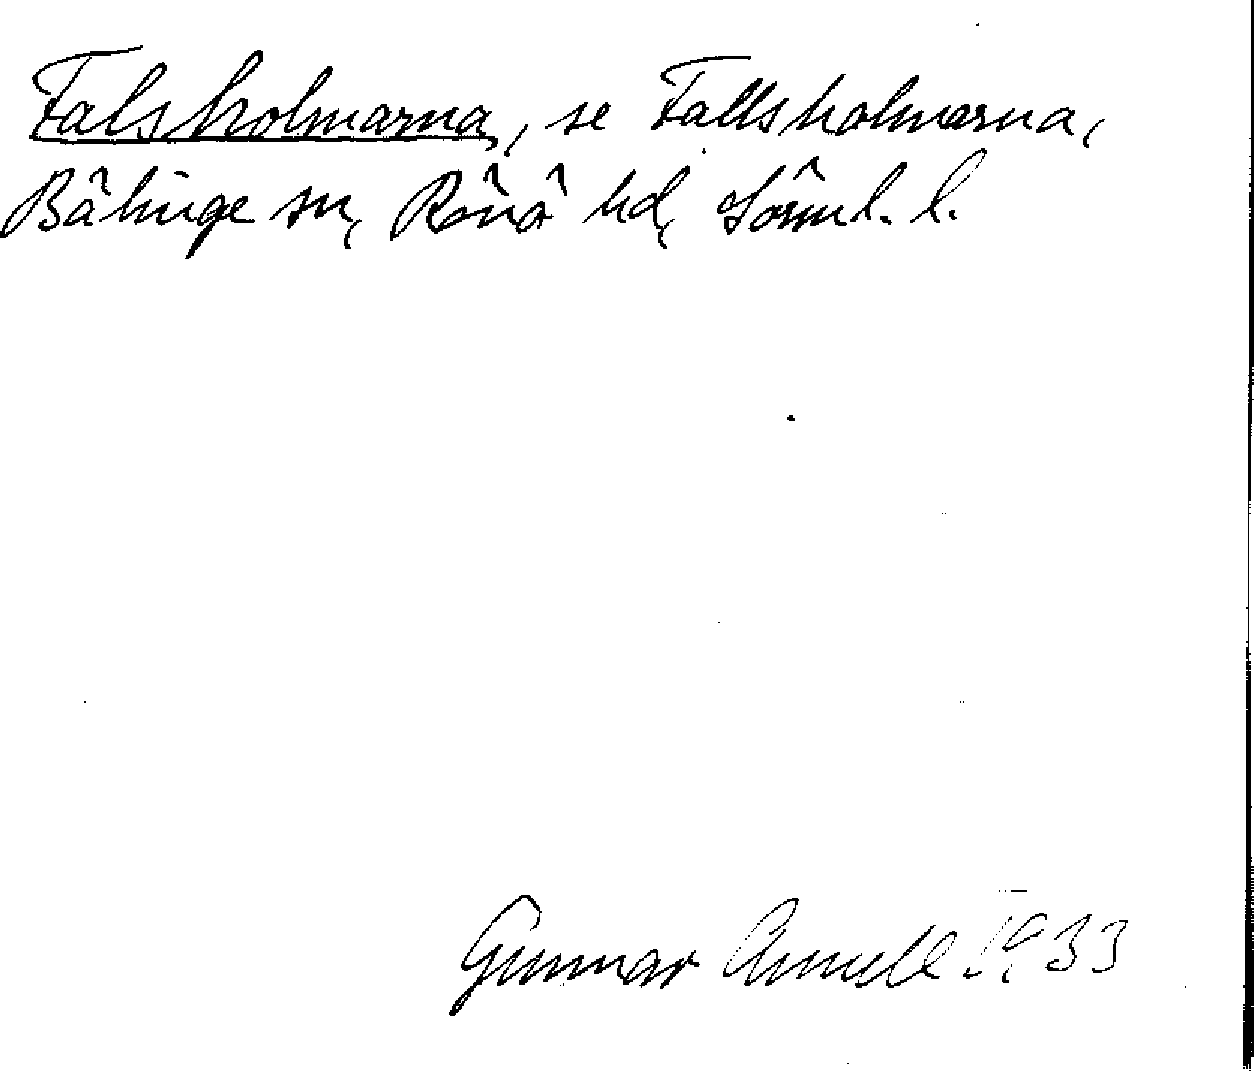 Falsholmarna, se Fallsholmarna,
Bälinge sn, Rönö hd, Sörml. l.
Gunnar Annell 1933